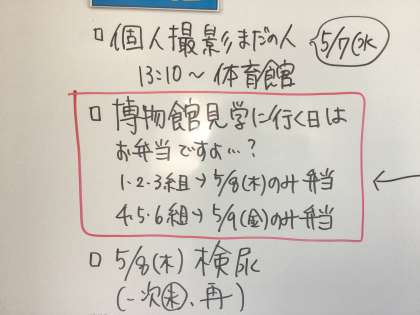 □ 個人撮影まだの人 5/7(水
13:10～ 体育館
□ 博物館見学に行く日は
お弁当ですよ…?
1・2・3組→5/8(木)のみ弁当
4.5.6組→5/9(金)のみ弁当
□ 5/8(木) 検尿
(一次未、再)